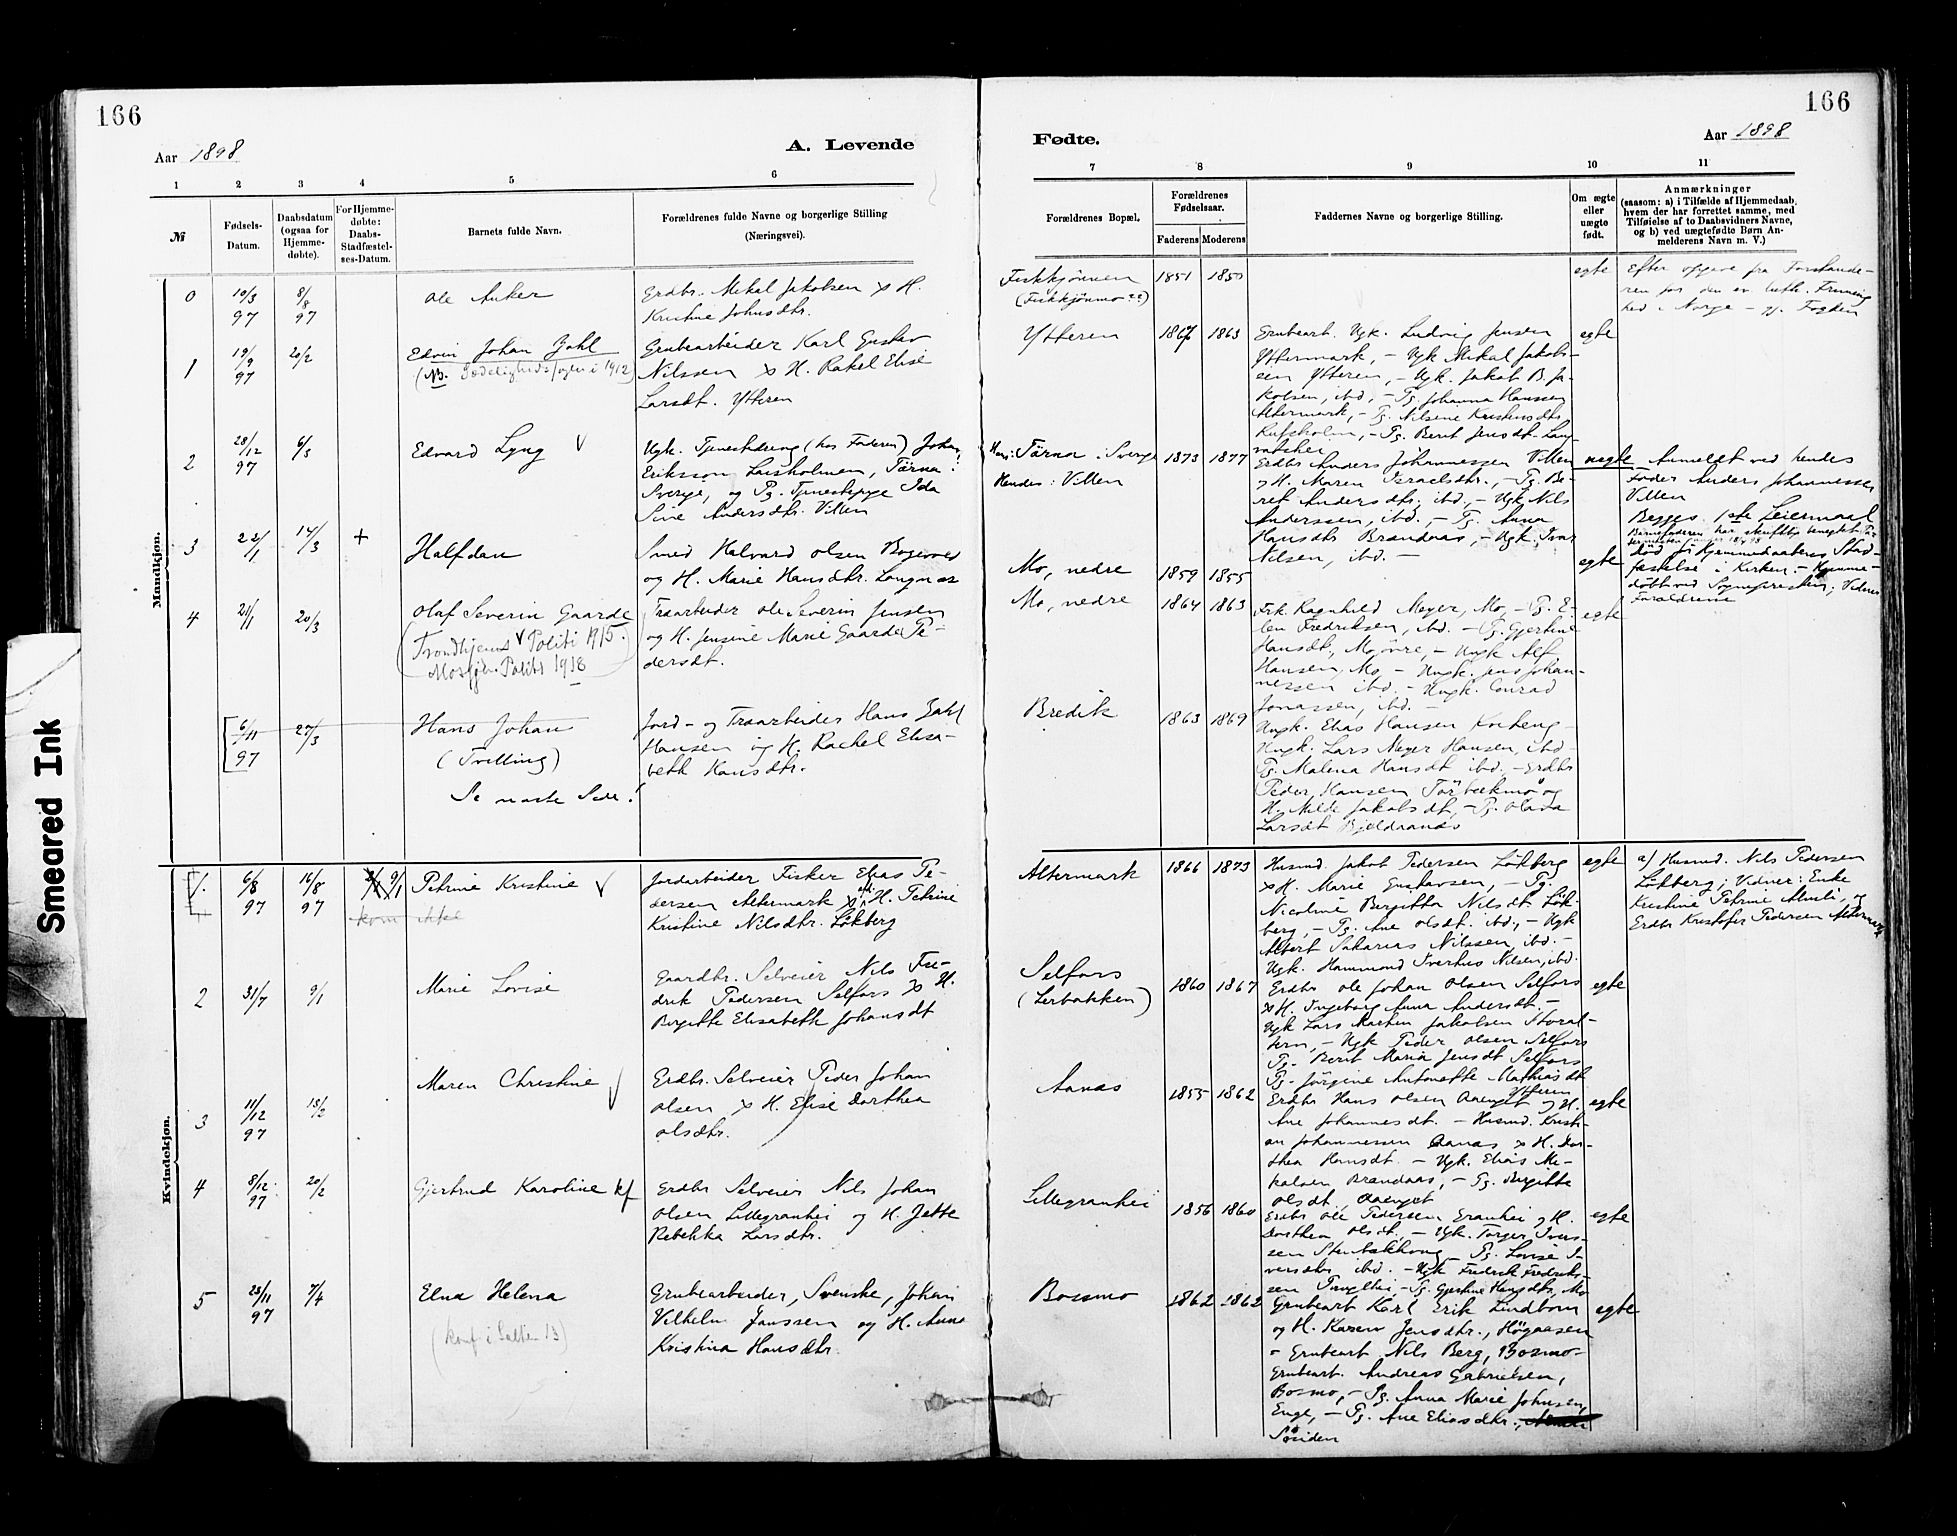 166
166
Aar 1898
A. Levende
Fødte.
Aar 1898
1 2 3 4 5 6
7 8 9 10 11
№
Fødsels-
Datum.
Daabsdatum
(ogsaa for
Hjemme-
døbte).
For Hjemme-
døbte:
Daabs-
Stadfæstel-
ses-Datum.
Barnets fulde Navn.
Forældrenes fulde Navne og borgerlige Stilling
(Næringsvei).
Forældrenes Bopæl.
Forældrenes
Fødselsaar.
Faderens Moderens
Faddernes Navne og borgerlige Stilling.
Om ægte
eller
uægte
født.
Anmærkninger
(saasom: a) i Tilfælde af Hjemmedaab,
hvem der har forrettet samme, med
Tilføielse af to Daabsvidners Navne,
og b) ved uægtefødte Børn An-
melderens Navn m. V.)
Mandkjøn.
0
10/3
97
8/8
97
Ole Anker
Erdbr. Mikal Jakobsen x H.
Kristine Johnsdtr.
1851 1850
egte
Efter opgave fra Forstande-
ren for den ev. luth. Frimenig
hed i Norge
1
19/9
97
20/2
Edvin Johan Zahl
Grubearbeider Karl Gustav
Nilssen x H. Rakel Elise
Larsdt. Ytteren
Ytteren
1867 1863
Grubearb. Ugk. Ludvig Jensen
Yttermark, – Ugk Mikal Jakob-
sen Ytteren, – Ugk. Jakob B. Ja-
kobsen, ibd, – Pg. Johanna Hansen
Altermark, – Pg. Nilsine Kristinsdtr.
egte
2
28/12
97
6/3
Edvard Lyng
Ugk. Tjenestedreng (hos Faderen) Johan
Eriksson Laisholmen, Tärna i
Sverige, og Pg. Tjenestepige Ida
Sine Andersdtr. Villen
Hans: Tärna i Sverige
Hendes: Villen
1873 1877
Erdbr Anders Johannessen Villen
og H. Maren Israelsdtr., – Pg. Be-
ret Andersdtr. ibd, – Ugk Nils
Anderssen, ibd. – Pg. Anna
Hansdtr Brandaas, – Ugk. Ivar
Nilsen, ibd. –
uegte
Anmeldt ved hendes
Fader Anders Johannessen
Villen
Begges 1ste Leiermaal
3
22/1
14/3
+
Halfdan
Smed Halvard Olsen Bogerud
og H. Marie Hansdtr. Langnes
Mo, nedre
1859 1855
egte
død før Hjemmedaabens Stad-
fæstelse i Kirken – Hjemme-
døbt ved Sognepresten; Vidner
Forældrene
4
21/1
20/3
Olaf Severin Gaarde
(Trondhjems Politi 1915.
Mosjøen Politi 1918
Træarbeider Ole Severin Jensen
og H. Jensine Marie Gaarde Pe-
dersdt.
Mo, nedre
1864 1863
Frk. Ragnhild Meyer, Mo, – Pg. E-
len Fredriksen, ibd. – Pg. Gjertine
Hansdt, Mo, øvre, – Ungk Alf
Hansen, Mo, – Ungk. Jens Johan-
nessen ibd. – Ungk. Conrad
Jonassen, ibd. –
egte
6/11
97
27/3
Hans Johan
(Tvilling)
Se næste Side!
Jord- og Træarbeider Hans Zahl
Hansen og H. Rachel Elisa-
beth Hansdtr.
Bredik
1863 1869
Ungk. Elias Hansen
Ungk. Lars Meyer Hansen, ibd –
Pg. Malena Hansdt ibd. – Erdbr
Peder Hansen og
H. Milde Jakobsdt, – Pg. Olava
Larsdt
Kvindekjøn.
1.
6/8
97
16/8
97
9/1
kom ikke
Petrine Kristine
Jordarbeider Fisker Elias Pe-
dersen Altermark x H. Petrine
Kristine Nilsdtr. Løkberg
Altermark
1866 1873
Husmd. Jakob Pedersen Løkberg
x H. Marie Gustavsen, – Pg.
Nicoline Bergitta Nilsdt. Løk-
berg, – Pg. Ane Olsdt. ibd, – Ugk
Albert Sakarias Nilssen, ibd. –
Ugk. Hammond Sverhus Nilsen, ibd.
egte
a) Husmd. Nils Pedersen
Løkberg; Vidner: Enke
Kristine Petrine og
Erdbr Kristofer Pedersen Altermark
2
31/7
9/1
Marie Lovise
Gaardbr. Selveier Nils Fre-
drik Pedersen Selfors x H.
Birgitte Elisabeth Johansdt
Selfors
(Lerbakken)
1860 1867
Erdbr Ole Johan Olsen Selfors
x H. Ingeborg Anna Andersdt. –
Ugk Lars Jakobsen
– Ugk Peder Olsen Selfors
Pg. Berit Maria Jensdt Selfors
Pg. Jørgine Antonette Mathiasdt
Ytteren
egte
3
11/12
97
13/2
Maren Christine
Erdbr. Selveier Peder Johan
Olsen x H. Elise Dorthea
Olsdtr.
Aanæs
1855 1862
Erdbr Hans Olsen og H.
Ane Johannesdt. – Husmd. Kristi-
an Johannessen Aanæs x H. Dor-
thea Hansdt. – Ugk. Elias Mi-
kalsen Brandaas, – Pg. Birgitte
Olsdt,
egte
4
8/12
97
20/2
Gjertrud Karoline
Erdbr Selveier Nils Johan
Olsen Lillegranhei og H. Jette
Rebekka Larsdtr.
Lillegranhei
1856 1860
Erdbr Ole Pedersen Granhei og H.
Dorthea Olsdt, – Ugk. Torger Iver-
sen – Pg. Lovise I-
versdtr ibd. – Ugk Fredrik Fredrik-
sen – Pg. Gjertine Hansdtr, Mo
egte
5
23/11
97
7/4
Elna Helena
(konf. i Saltens 13)
Grubearbeider, Svenske, Johan
Vilhelm Janssen og H. Anna
Kristina Hansdtr.
Bossmo
1862 1862
Grubearb Karl Erik Lindbom
og H. Karen Jensdtr., Høgaasen
– Grubearb Nils Berg, Bosmo –
Grubearb. Andreas Gabrielsen,
Bosmo, – Pg. Anna Marie Johnsen,
Enge, – Pg. Ane Eliasdtr.,
egte
Smeared Ink